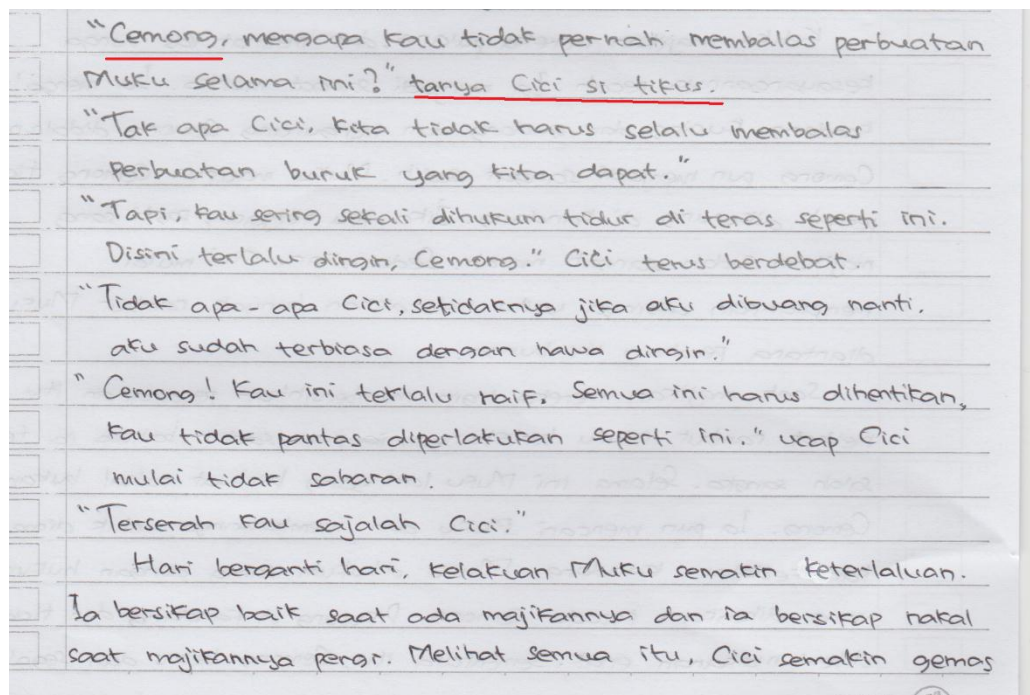 "Cemong, mengapa kau tidak pernah membalas perbuatan
Muku selama ini?" tanya Cici si tikus.
"Tak apa Cici, kita tidak harus selalu membalas
perbuatan buruk yang kita dapat."
"Tapi, kau sering sekali dihukum tidur di teras seperti ini.
Disini terlalu dingin, Cemong." Cici terus berdebat.
"Tidak apa-apa Cici, setidaknya jika aku dibuang nanti,
aku sudah terbiasa dengan hawa dingin."
"Cemong! Kau ini terlalu naif. Semua ini harus dihentikan,
kau tidak pantas diperlakukan seperti ini." ucap Cici
mulai tidak sabaran.
"Terserah kau sajalah Cici."
Hari berganti hari, kelakuan Muku semakin keterlaluan.
Ia bersikap baik saat ada majikannya dan ia bersikap nakal
saat majikannya pergi. Melihat semua itu, Cici semakin gemas